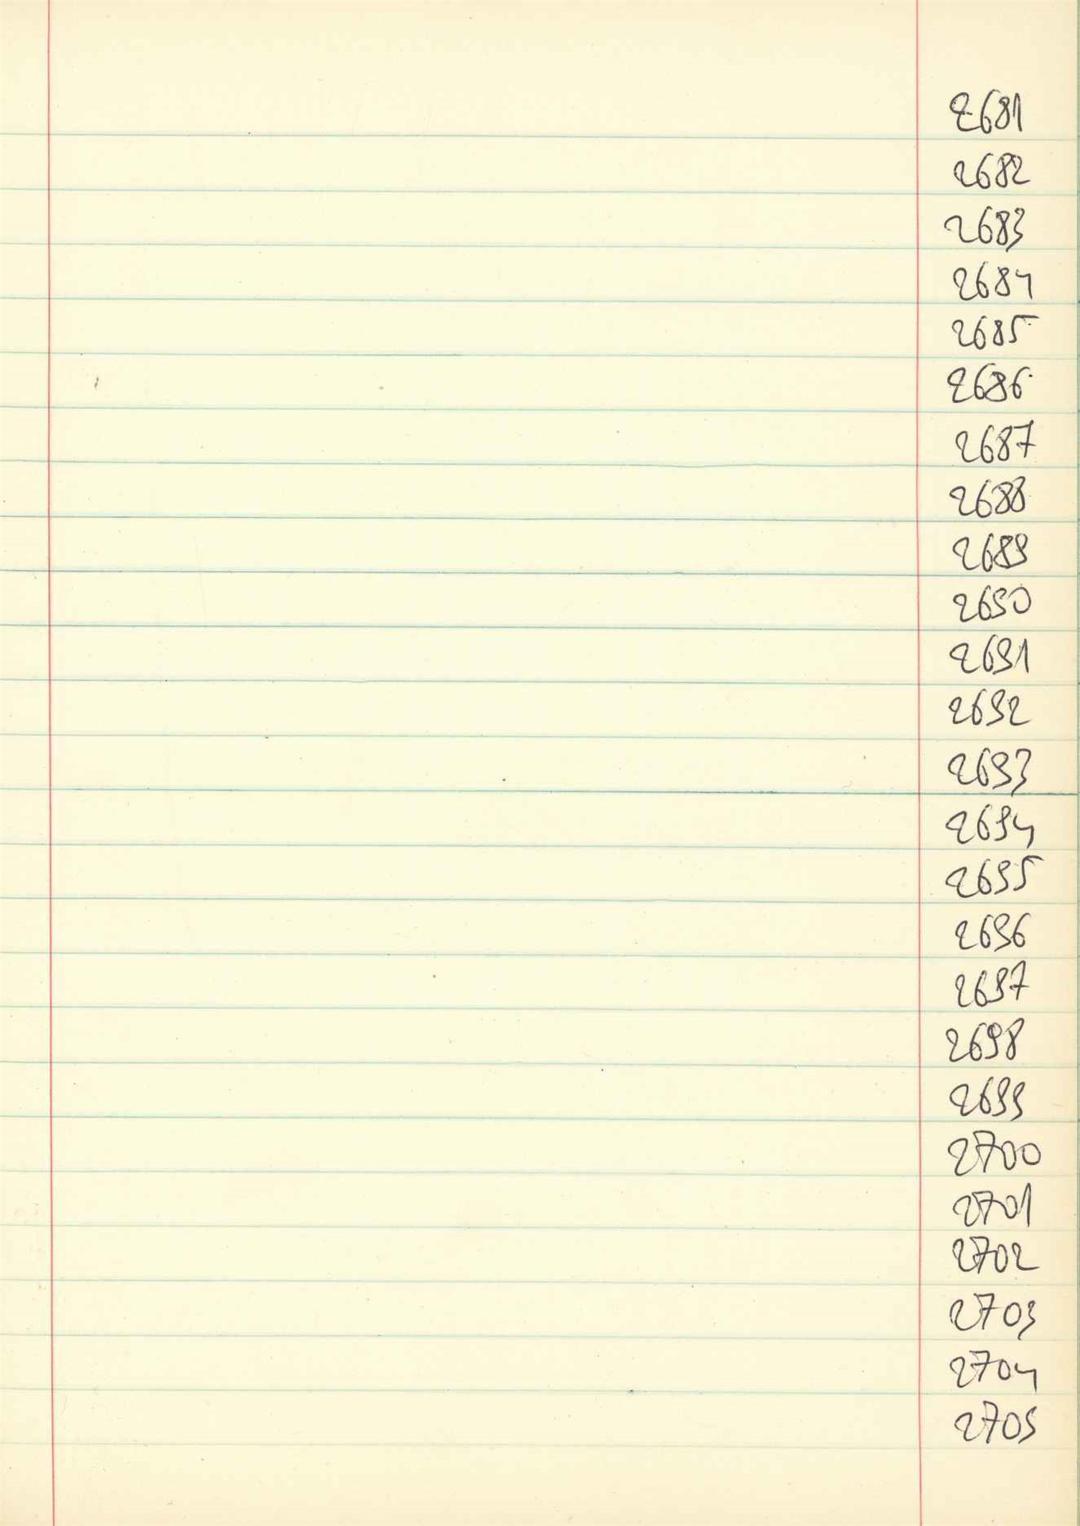 2681
2682
2683
2684
2685
2686
2687
2688
2689
2690
2691
2692
2693
2694
2695
2696
2697
2698
2699
2700
2701
2702
2703
2704
2705